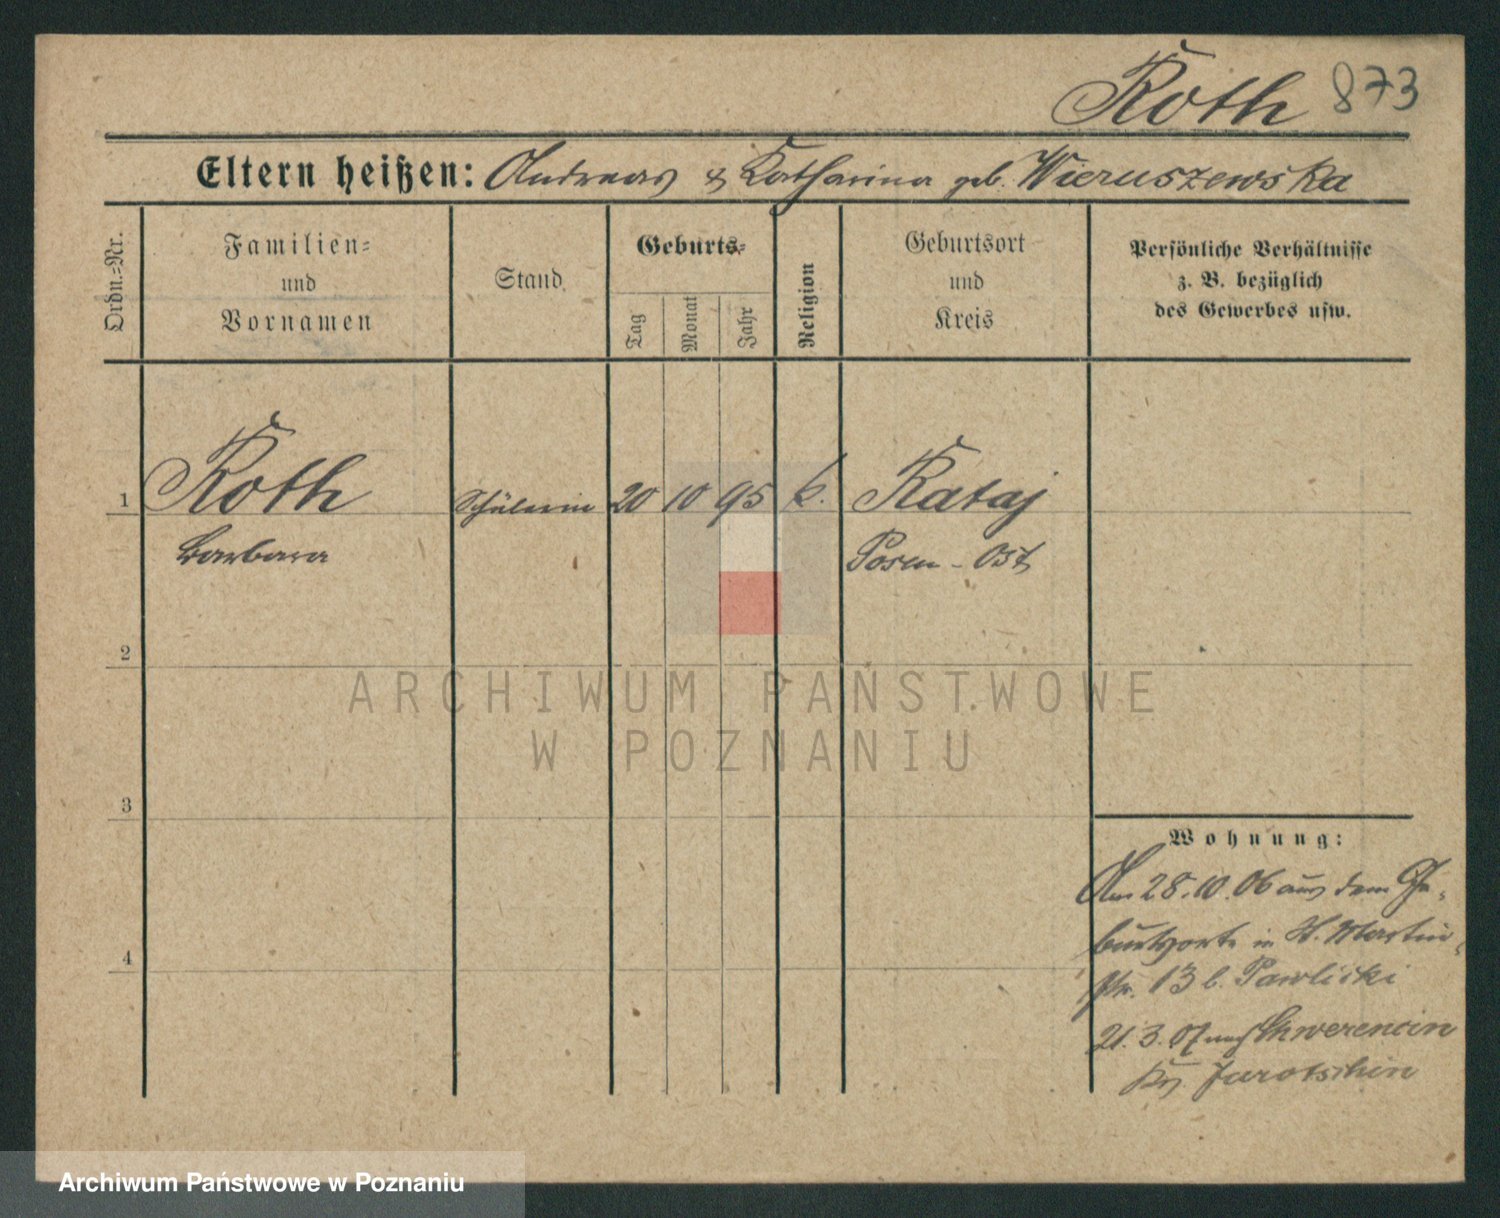 Roth 873
Eltern heißen: Andreas & Katharina geb. Wieruszewska
Ordn.-Nr.
Familien-
und
Vornamen
Stand
Geburts-
Tag
Monat
Jahr
Religion
Geburtsort
und
Kreis
Persönliche Verhältnisse
z. B. bezüglich
des Gewerbes usw.
1 Roth Schülerin 20 10 95 k. Kataj
Barbara Posen-Ost
2
ARCHIWUM PAŃSTWOWE
W POZNANIU
3
Wohnung:
Am 28.10.06 aus dem Ge-
burtsorte in St. Martin-
str. 13 b. Pawlicki
4
21.3.07 nach Schwerencin
Krs Jarotschin
Archiwum Państwowe w Poznaniu